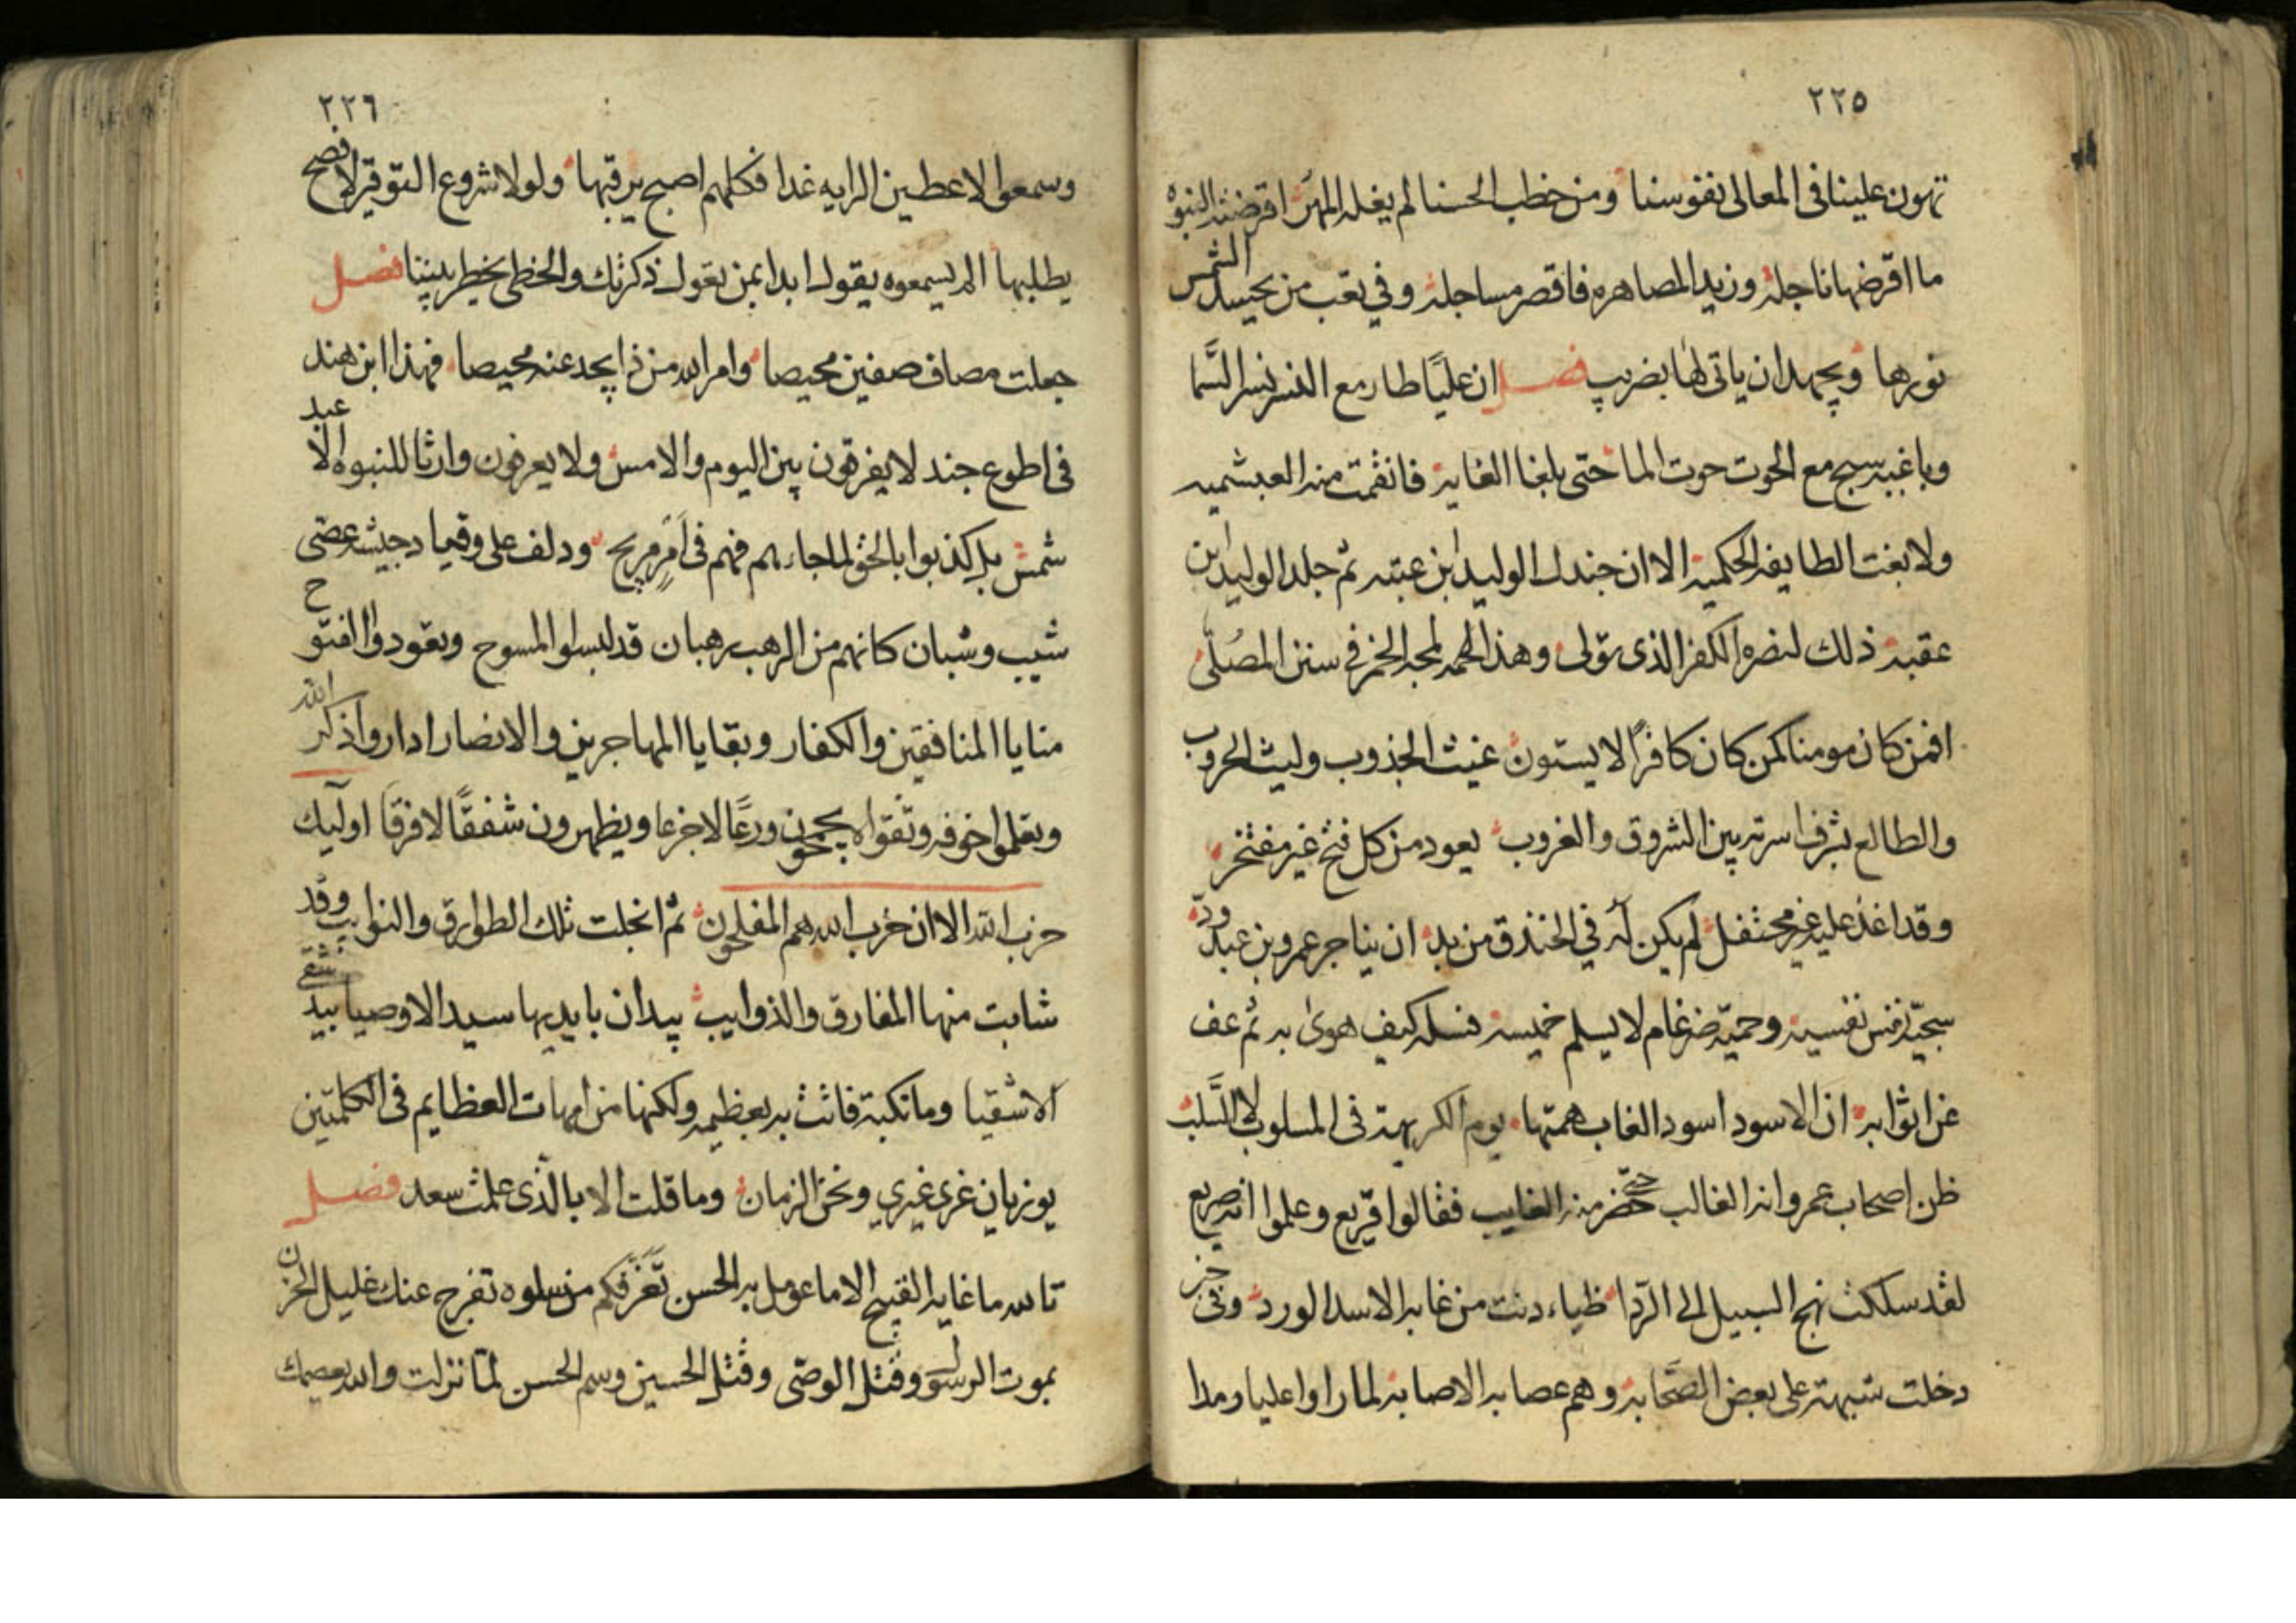 ٢٢٥
تهون علينا فى المعالى نفوسنا ومن خطب الحسنا لم يغله المهر اقرضته النبوه
ما اقرضها ناجله وزيد المصاهره فاقصر مساجله وفي تعب من يحسد الشمس
نورها ويجهد ان ياتى لها بضريب فصل ان عليًا طار مع النسر نسر السَّما
سبح مع الحوت حوت الما حتى بلغا الغايه فانقمت منه العبشميه
ولا بغت الطايفه الحكميه الا ان جندل الوليد ابن عتبه ثم جلد الوليد ابن
عقبه ذلك لنصره الكفر الذى تولى وهذا لحمه الخمر فى سنن المصُلّى
افمن كان مومنا كمن كان كافرًا لا يستون غيث الجذوب وليث الحروب
والطالع بشرف اسرته بين الشروق والغروب يعود من كل فتح غير مفتخر
وقد اغذ عليه غير محتفل لم يكن له في الخندق من بد ان يناجر عمرو بن عبد ودّ
سجيّة نفس نفسيه وحميّة ضرغام لا يسلم خميسه فسله كيف هوى به ثم عف
عن اثوابه ان الاسود اسود الغاب همتها يوم الكريهة فى المسلوب لا السَّلب
ظن اصحاب عمرو انه الغالب حتى حضر منه الغايب فقالوا قريع وعلموا انه صريع
لقد سلكت نهج السبيل الى الرّدا ظباء دنت من غابه الاسد الورد وفى خيبر
دخلت شبهة على بعض الصّحابه وهم عصابه الاصابه لما راوا عليا رمدا
٢٢٦
وسمعوا لاعطين الرايه غدا فكلهم اصبح يرقبها ولولا شروع التوقير لاصبح
يطلبها الم يسمعوه يقول ابدا بمن تعول ذكرتك والخطى يخطر بيننا فصل
جعلت مصاف صفين محيصا وامر الله من ذا يجد عنه محيصا فهذا ابن هند
فى اطوع جند لا يفرقون بين اليوم والامس ولا يعرفون وارثا للنبوه الا عبد
شمس بل كذبوا بالحق لما جاءهم فهم فى امرٍ مريج ودلف على وقيما دجيشه عصّى
شيب وشبان كانهم من الرهب رهبان قد لبسوا المسوح وتعودوا الفتوح
منايا المنافقين والكفار وبقايا المهاجرين والانصار ادار واذكر الله
خوفه ورعًا لا جزعا ويظهرون شفقًا لا فرقا اوليك
حزب الله الا ان حزب الله هم المفلحون ثم انجلت تلك الطوارق والنوايب وقد
شابت منها المفارق والذوايب بيد ان بايديها سيد الاوصيا بيد اشقى
الاشقيا وما نكبة فاتت به بعظيمه ولكنها من امهات العظايم فى الكلمتين
يوزيان غرى غيري ونحن الزمان وما قلت الا بالذى علمت سعد فصل
تالله ما غايه القبيح الا ما عومل به الحسن تعزفكم من سلوه تفرج عنك غليل الحزن
بموت الرسول وقتل الوصّى وقتل الحسين وسم الحسن لمّا نزلت والله يعصمك